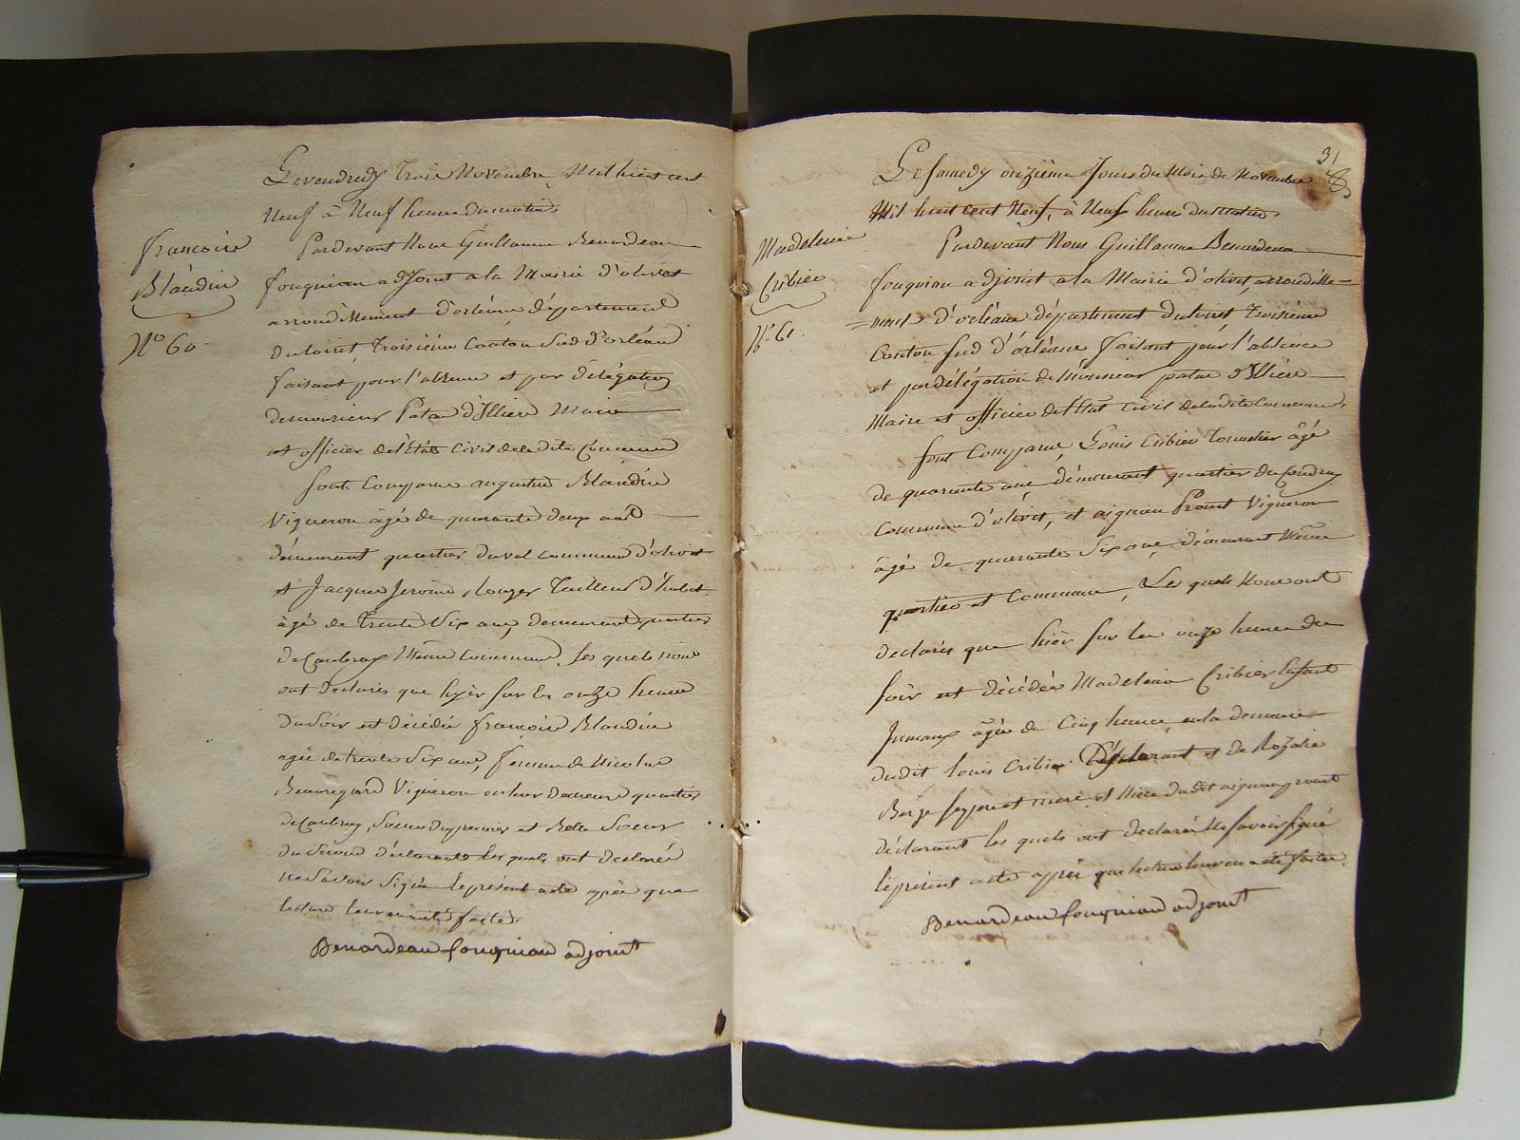 Le vendredy trois Novembre Mil huit cent
Neuf à Neuf heure du matin
françoise
Blandin
N° 60
Pardevant Nous Guillaume Benardeau
fouquiau adjoint a la Mairie d'olivet
arrondissement d'orléans département
du loiret, troisième Canton Sud d'orléans
faisant pour l'absence et par délégation
de monsieur Patas d'Illiers Maire
et officier de l'Etat Civil de la dite Commune
sont Comparus augustin Blandin
Vigneron âgé de quarante deux ans
démeurant quartier du val commune d'olivet
et Jacques Jerome Rouger tailleur d'habit
âgé de trente Six ans, demeurant quartier
de Coubray Même commune, Les quels nous
ont declarés que hyer sur les onze heures
du Soir est décédée françoise Blandin
agée de trente Six ans, femme de Nicolas
Beauregard Vigneron en leur demeure quartier
de Coubray, Soeur du premier et Belle Soeur
du Second déclarants Les quels ont declarés
ne Savoir Signer le présent acte après que
lecture leur en a été faite
Benardeau fouquiau adjoint
31
Le Samedy onzième Jour du Mois de Novembre
Mil huit cent Neuf, à Neuf heures du matin
Madeleine
Cribier
N° 61
Pardevant Nous Guillaume Benardeau
fouquiau adjoint a la Mairie d'olivet, arrondisse=
=ment d'orléans département du loiret troisième
Canton Sud d'orléans faisant pour l'absence
et par délégation de Monsieur patas d'Illiers
Maire et officier de l'Etat Civil de la dite Commune
sont Comparus, Louis Cribier tonnelier âgé
de quarante ans démeurant quartier du Coudray
Commune d'olivet, et aignan Proust Vigneron
âgé de quarante Six ans, démeurant Même
quartier et Commune, Les quels Nous ont
declarés que hièr sur les onze heures du
soir est décédée Madeleine Cribier Enfant
Jumeaux âgée de Cinq heures en la demeure
du dit louis Cribier Déclarant et de Rozalie
ses pere et mere et Niece du dit aignan proust
déclarant les quels ont declarés Ne savoir signé
le présent acte après que lecture leur en a été faite
Benardeau fouquiau adjoint